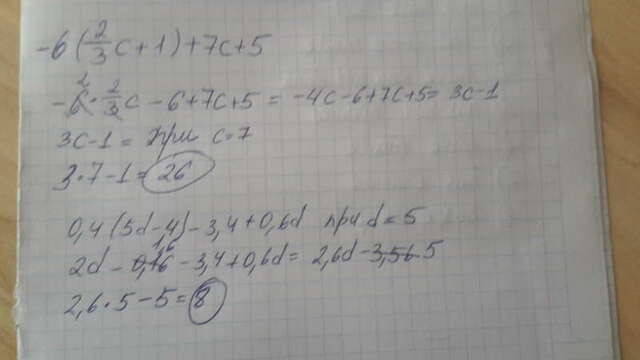 -6(2/3c+1)+7c+5
-6²·2/3c-6+7c+5=-4c-6+7c+5=3c-1
3c-1= при c=7
3·7-1=26
0,4(5d-4)-3,4+0,6d при d=5
2d-0,16 1,6-3,4+0,6d=2,6d-3,56 5
2,6·5-5=8